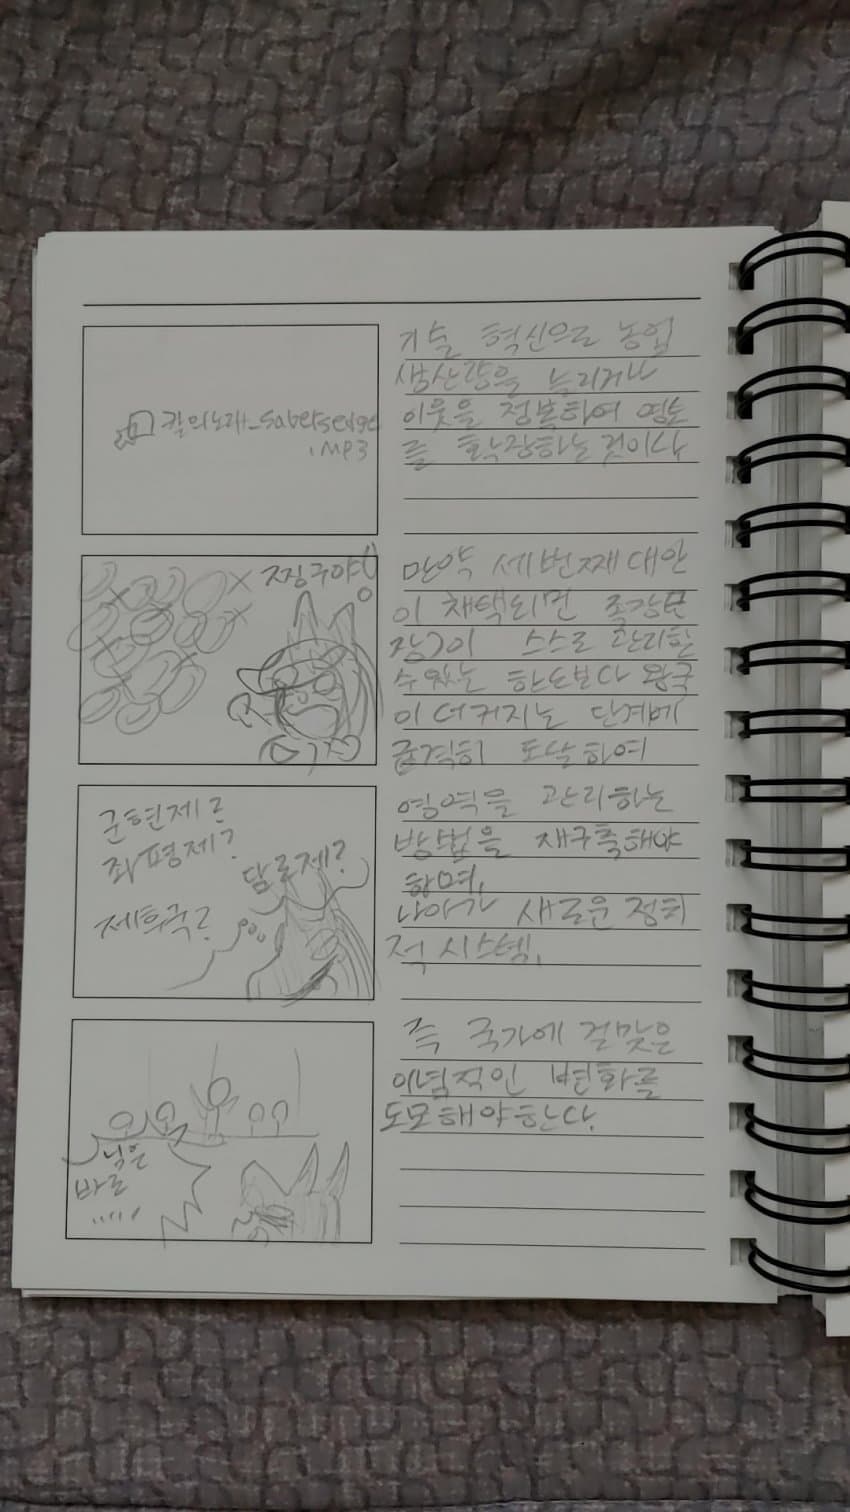 칼의노래_Sabersedge
.MP3
기술 혁신으로 농업
생산량을 늘리거나
이웃을 정복하여 영토
를 확장하는것이다
짱구야!
만약 세번째 대안
이 채택되면 족장
이 스스로 관리할
수 있는 한도보다 왕국
이 더 커지는 단계에
급격히 도달하여
군현제?
좌평제?
담로제?
제후국?
영역을 관리하는
방법을 재구축해야
하며,
나아가 새로운 정치
적 시스템,
님은
바로
.....
즉 국가에 걸맞은
이념적인 변화를
도모해야한다.